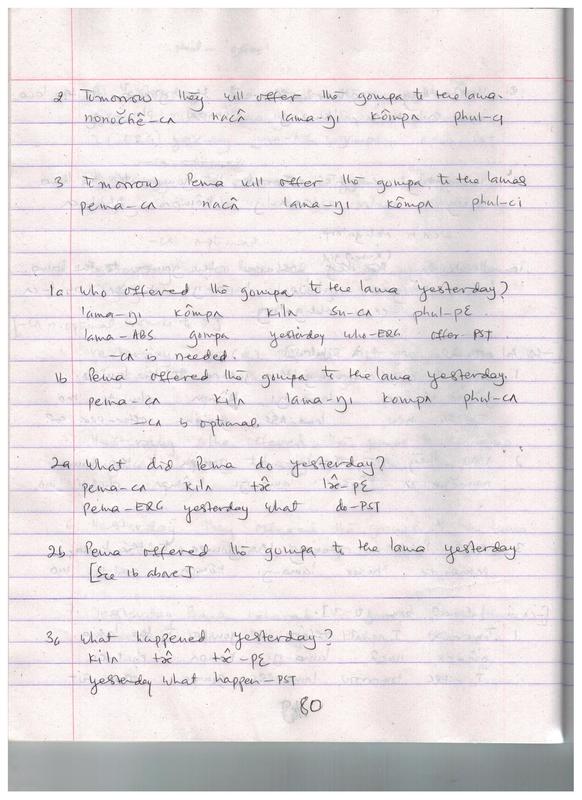 2 Tomorrow they will offer the gompa to the lama.
nonočhê-cʌ nacʌ̂ lama-ŋı kômpʌ phul-cı
3 Tomorrow Pema will offer the gompa to the lamas
pema-cʌ nacʌ̂ lama-ŋı kômpʌ phul-ci
1a Who offered the gompa to the lama yesterday?
lama-ŋı kômpʌ kilʌ su-cʌ phul-pɛ
lama-ABS gompa yesterday who-ERG offer PST
-cʌ is needed.
1b Pema offered the gompa to the lama yesterday.
pema-cʌ kilʌ lama-ŋı kompʌ phul-cʌ
-cʌ is optional.
2a What did Pema do yesterday?
pema-cʌ kilʌ
pema-ERG yesterday what do-PST
2b Pema offered the gompa to the lama yesterday
[See 1b above]
3a What happened yesterday?
kilʌ
yesterday what happen-PST
80